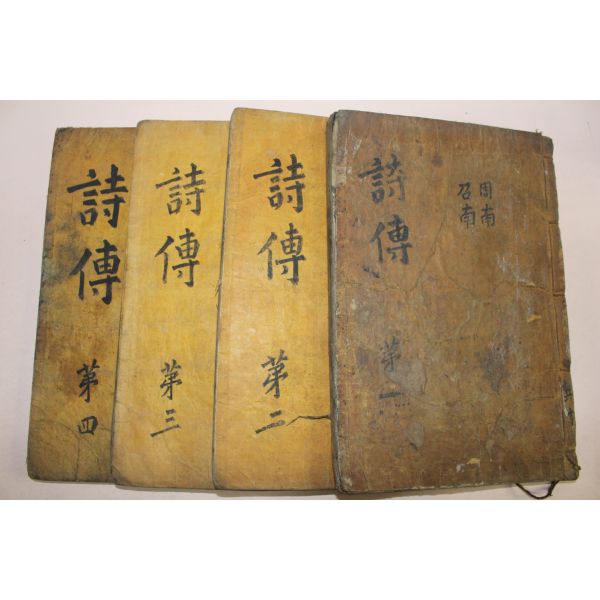 周南
召南
詩傳 第一
詩傳 第二
詩傳 第三
詩傳 第四